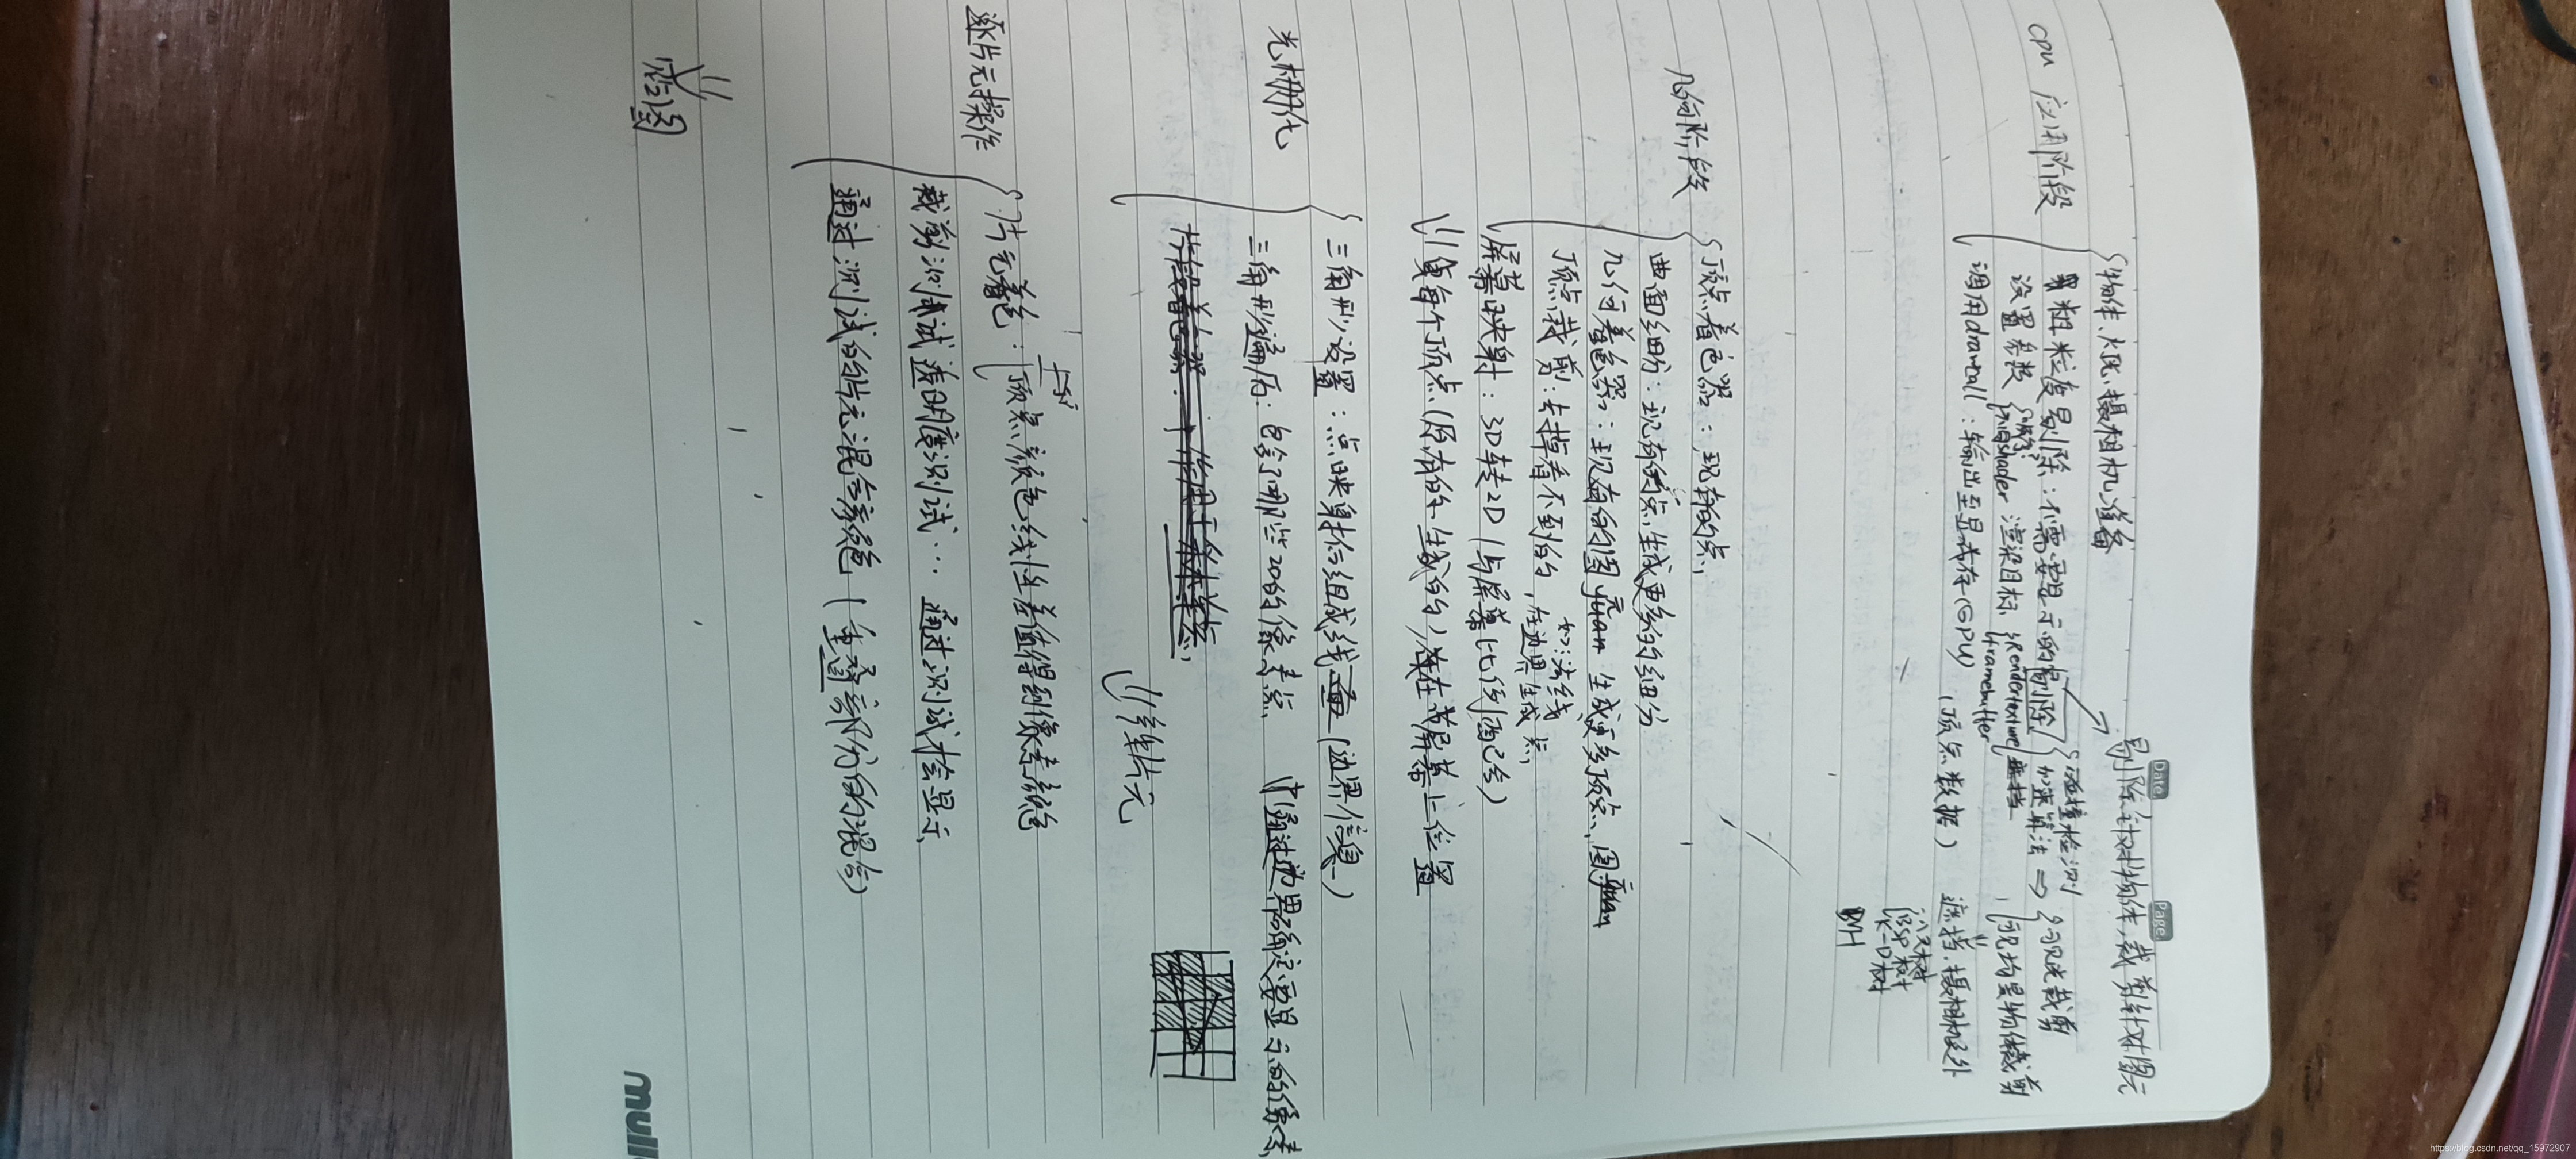 Date.
Page.
剔除针对物体,裁剪针对图元
CPU 应用阶段
物体、灯光、摄相机准备
粗粒度剔除:不需要显示的剔除
碰撞检测
加速算法 => 视锥裁剪
设置参数
渲染目标
Rendertexture
framebuffer
视口外物体裁剪
调用drawcall:输出至显存(GPU)
(顶点数据)
遮挡、摄相机以外
八叉树
BSP树
K-D树
BVH
几何阶段
顶点着色器:现有的点,
曲面细分:现有的点,生成更多的细分
几何着色器:现有的图元yuan 生成更多顶点、图元
顶点裁剪:卡掉看不到的,在边界生成点,
如:法线
屏幕映射:3D转2D(与屏幕比例配合)
每个顶点(原有的、生成的)在屏幕上位置
光栅化
三角形设置:点映射信组成线 (边界信息)
三角形遍历:包含了哪些2D的像素点 (通过边界确定要显示的像素,
片段着色器:作用于像素点,
片元
逐片元操作
片元着色:顶点颜色线性差值得到像素颜色
裁剪测试 透明度测试... 通过测试才会显示
通过测试的片元混合颜色(重叠部分的混合)
绘图
https://blog.csdn.net/qq_15972907